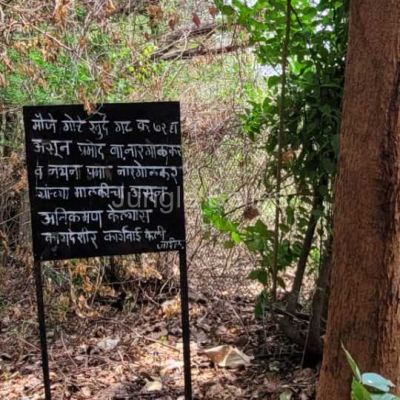 मौजे गोरे खुर्द गट क्र ७२ हा
असून प्रमोद वा. नारगोळकर
व नयना प्रमोद नारगोळकर
यांच्या मालकीचा असून
अतिक्रमण केल्यास
कायदेशीर कार्यवाई केली
जाईल
Jungle